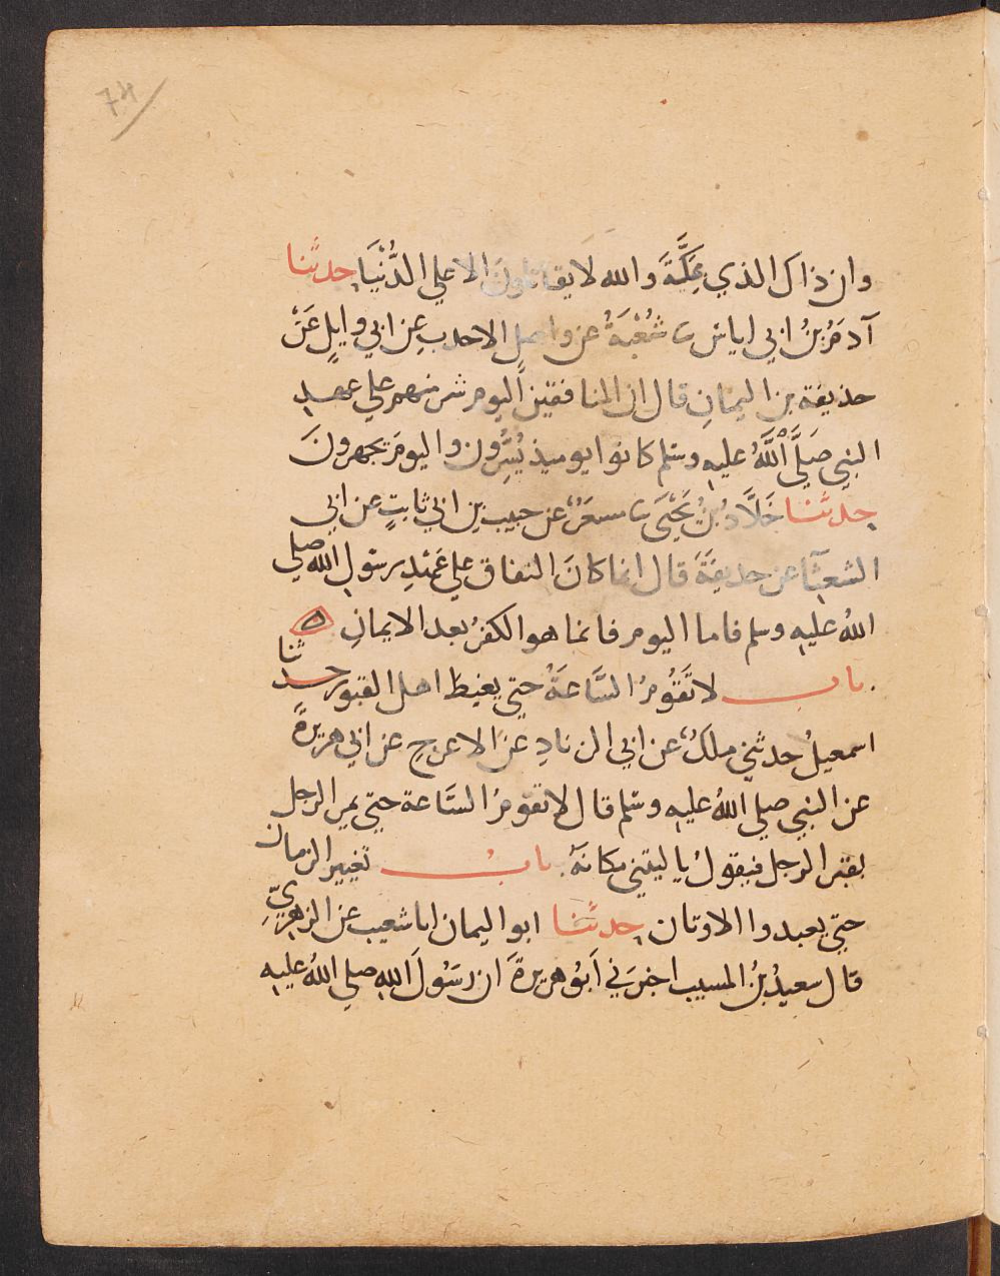 74
وان ذاك الذي بمَكَّةَ والله لا يقاتلونَ الا علي الدُّنْيَا حدثنا
آدمَرُ بنُ ابي اياسٍ نا شُعْبَةُ عن واصلٍ الاحدب عن ابي وايلٍ عَنْ
حذيفة بن اليمانِ قال ان المنافقين اليوم شر منهم علي عهد
النبي صَلَّي اللَّهُ عليهِ وسَلم كانوا يوميذ يُسِّرُون واليومَ يجهرونَ
حدثنا خَلَّادُ بْنُ يَحْيَي نا مسعَرٌ عن حبيب بن ابي ثابتٍ عن ابي
الشعثآ عن حذيفَةَ قال انما كانَ النفاق علي عَهْدِ رسُول الله صلي
اللهُ عليهِ وسلم فاما اليوم فانما هو الكفرُ بعد الايمانِ ه
باب لا تَقُومُ السَّاعَةُ حتي يغبط اهل القبور حدثنا
اسمعيلُ حدثني ملكٌ عن ابي الزنادِ عن الاعرج عن ابي هريرةَ
عن النبي صلي اللهُ عليهِ وسَلم قال لا تقومُ السَّاعة حتي يمر الرجل
بقبر الرجل فيقولُ يا ليتني مكانَهُ باب تغيير الزمان
حتي يعبدوا الاوثان حدثنا ابو اليمان انا شعيب عن الزهريِّ
قال سعيدُ بنُ المسيب اخبرَني أبُو هريرةَ ان رسُولَ اللهِ صلي اللهُ عليهِ